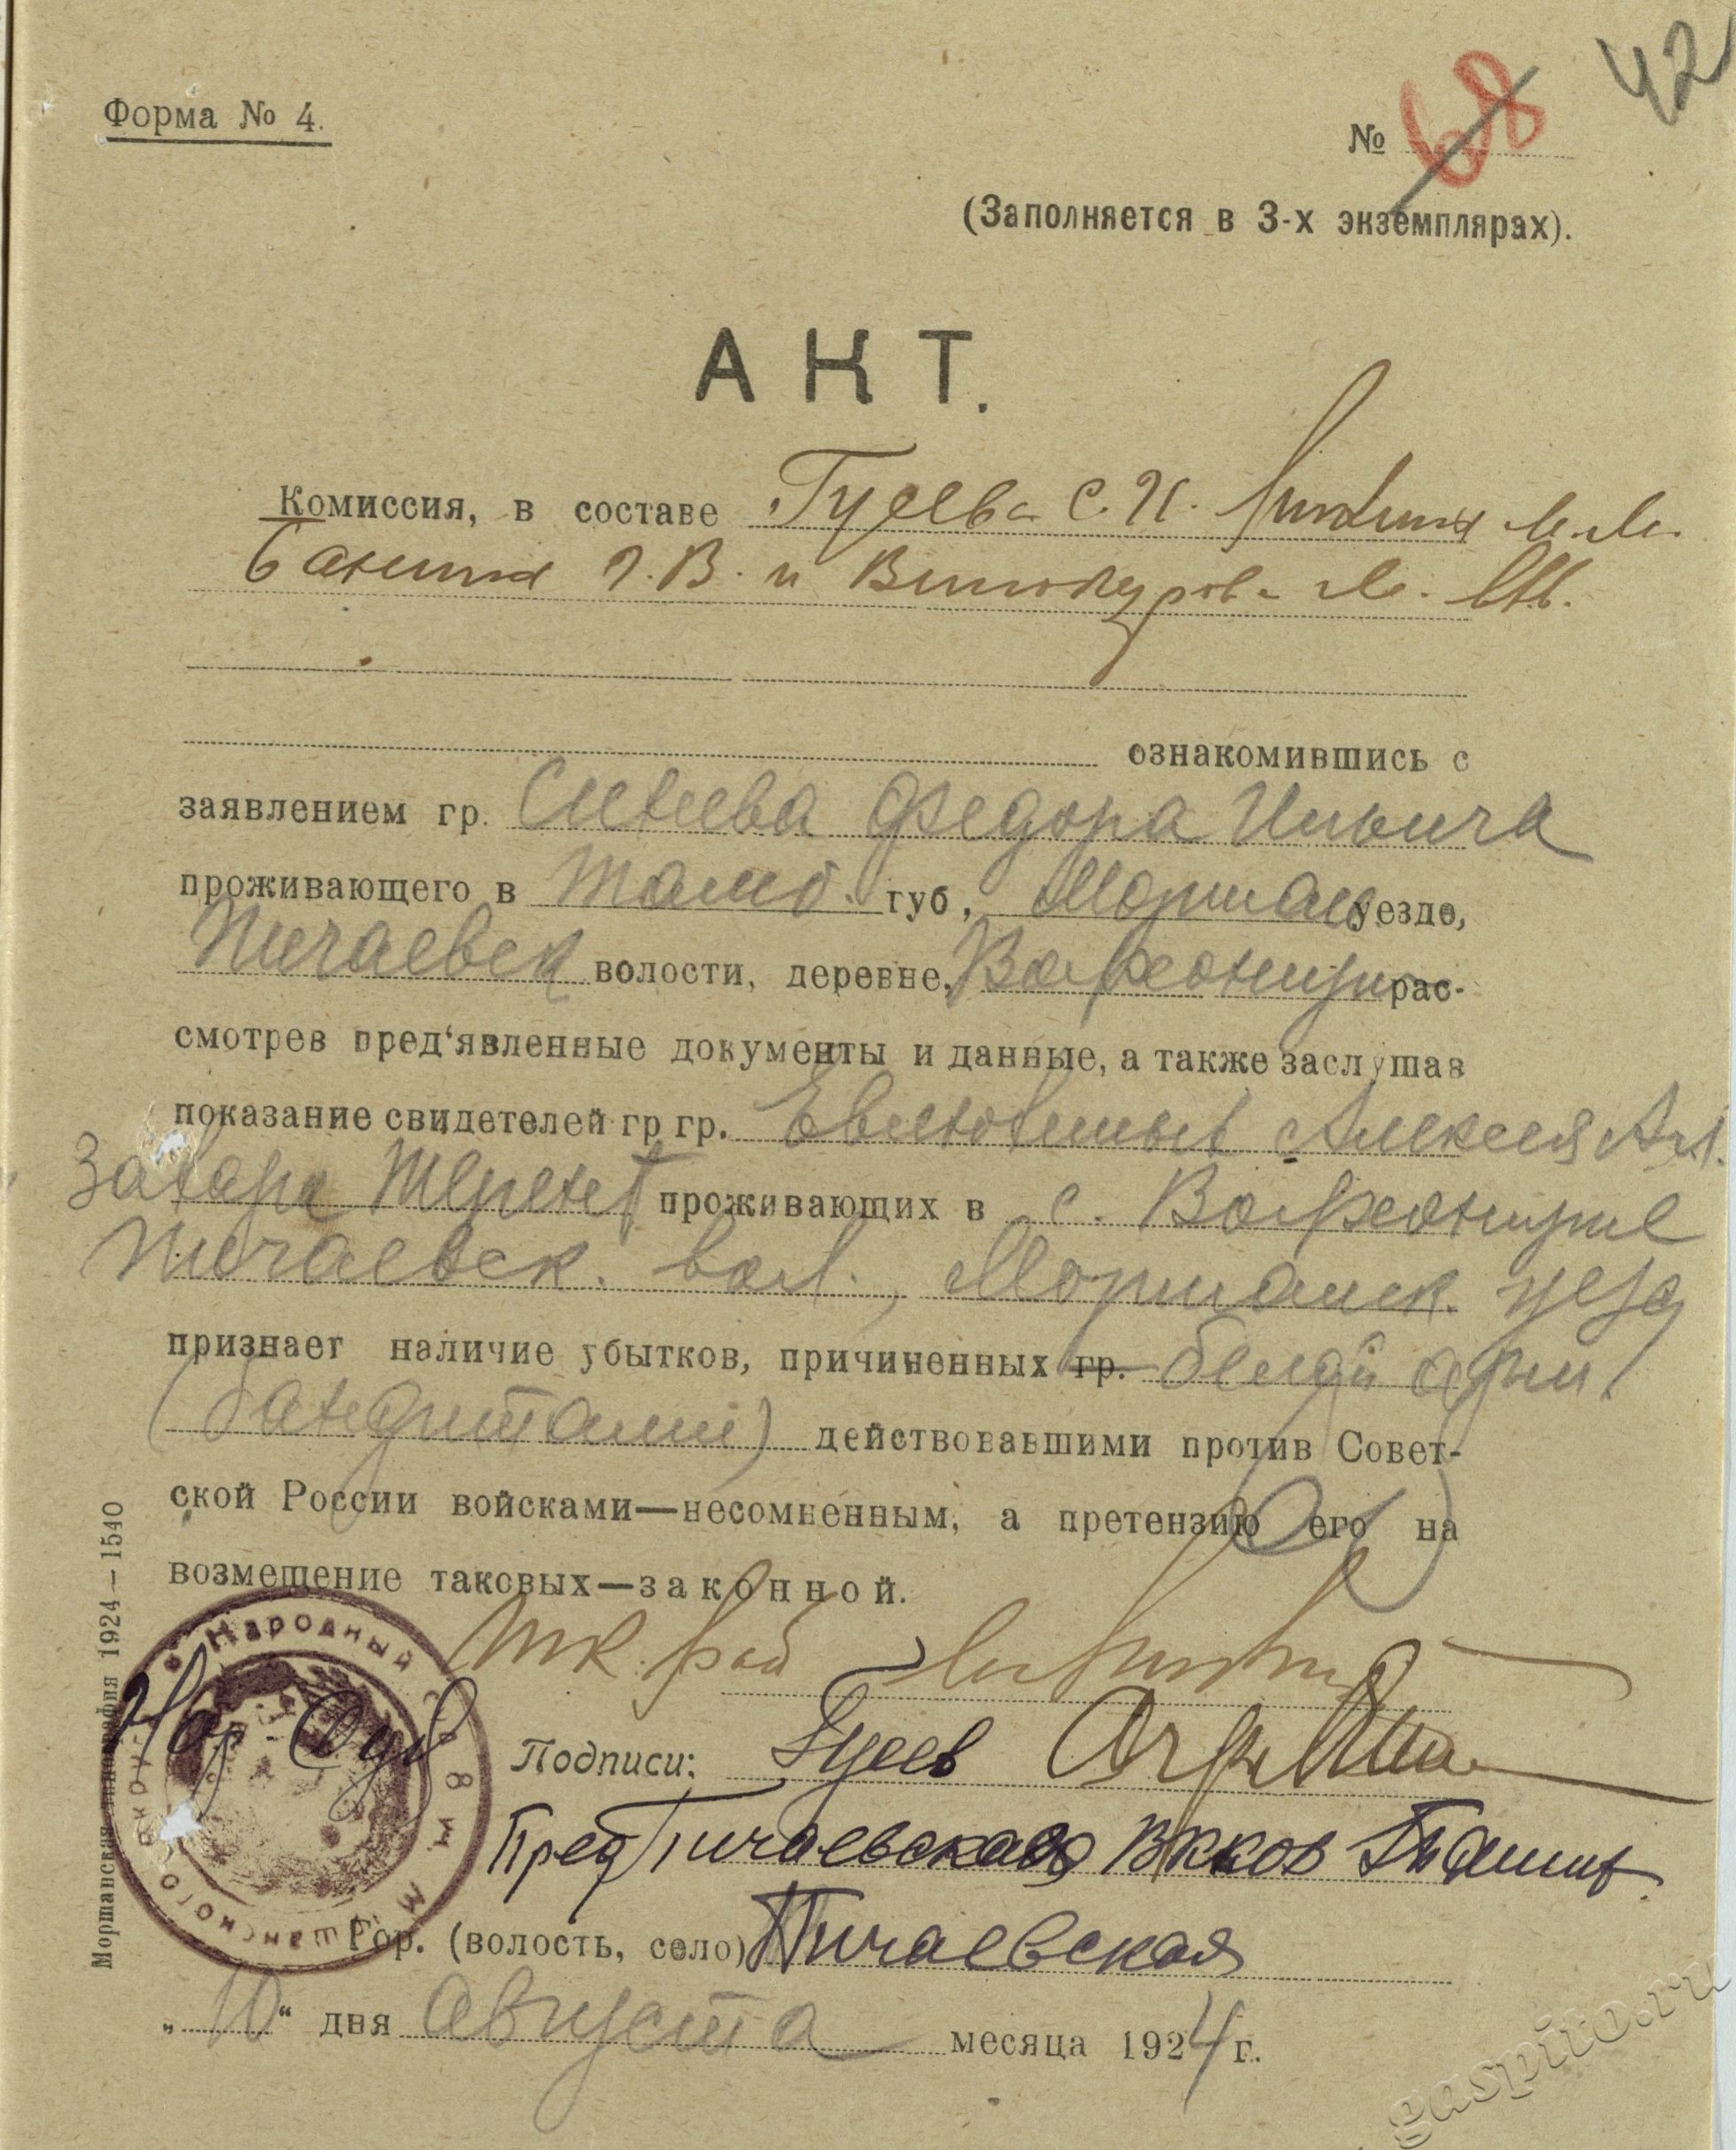 42
Форма № 4.
№ 68
(Заполняется в 3-х экземплярах).
АКТ.
Комиссия, в составе Гусева С. И.
Банина П. В. и Винокурова
ознакомившись с
заявлением гр. Федора Ильича
проживающего в Тамб. губ, Моршан уезде,
Пичаевск волости, деревне, Вяжеонирирас-
смотрев пред'явленные документы и данные, а также заслушав
показание свидетелей гр гр. Алексея Ал.
Захара Терент проживающих в с.
Пичаевск. вол., Моршанск. уезд
признает наличие убытков, причиненных гр. белой арми
(бандитами) действовавшими против Совет-
ской России войсками—несомненным, а претензию его на
возмещение таковых—законной.
Подписи: Гусев
Нар Суд
Пред Пичаевского Банин
Гор. (волость, село) Пичаевская
„10“ дня Августа месяца 1924 г.
Моршанская типография 1924—1540
Народный суд 8 уч. Моршанского округа
gaspito.ru